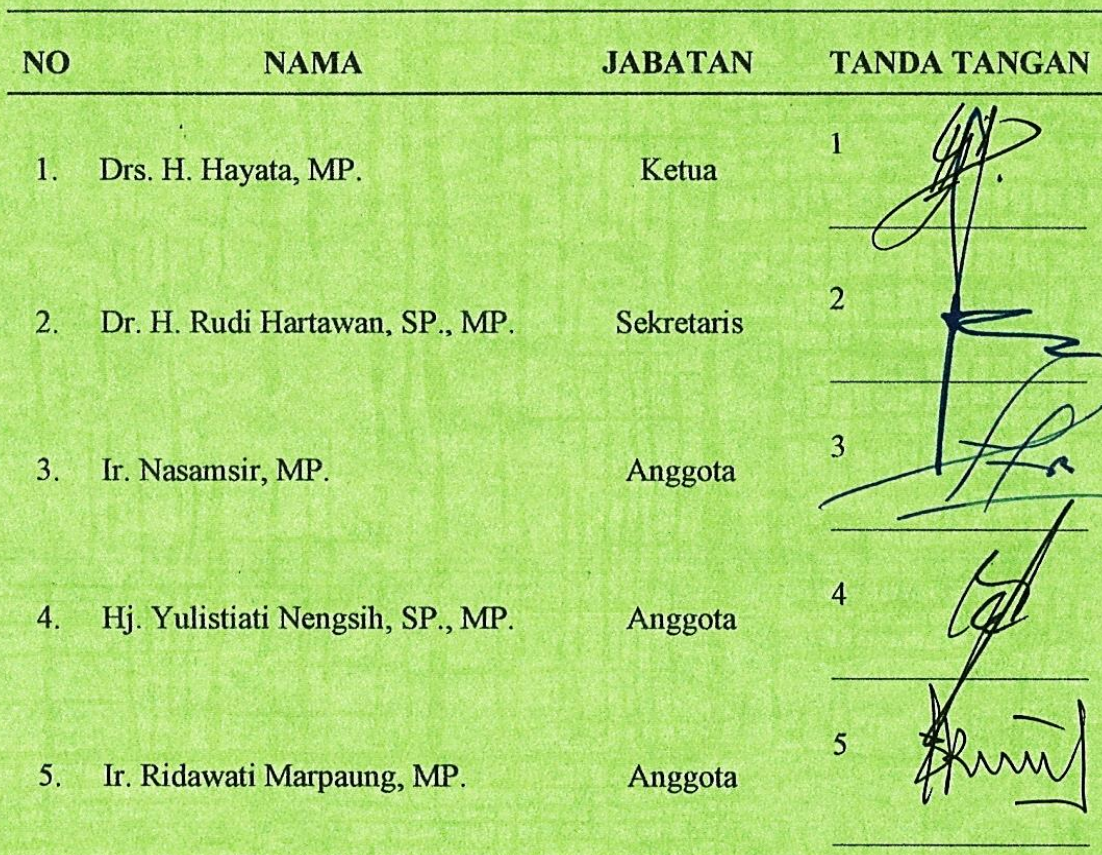 NO NAMA JABATAN TANDA TANGAN
1. Drs. H. Hayata, MP. Ketua 1
2. Dr. H. Rudi Hartawan, SP., MP. Sekretaris 2
3. Ir. Nasamsir, MP. Anggota 3
4. Hj. Yulistiati Nengsih, SP., MP. Anggota 4
5. Ir. Ridawati Marpaung, MP. Anggota 5